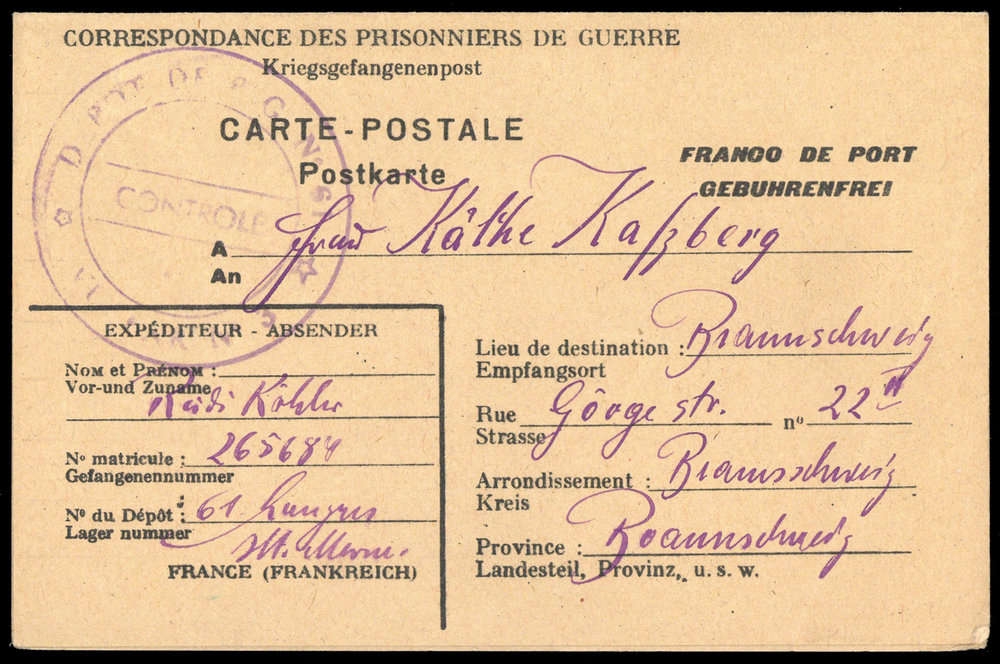 CORRESPONDANCE DES PRISONNIERS DE GUERRE
Kriegsgefangenenpost
CARTE-POSTALE
Postkarte
FRANCO DE PORT
GEBUHRENFREI
DEPOT DE P.G. N° 61
CONTROLE
A Frau Käthe Kaßberg
An
EXPÉDITEUR - ABSENDER
NOM et PRÉNOM :
Vor-und Zuname
Rudi Köhler
N° matricule : 265684
Gefangenennummer
N° du Dépôt : 61 Langres
Lager nummer
Ht. Marne.
FRANCE (FRANKREICH)
Lieu de destination : Braunschweig
Empfangsort
Rue Görge str. n° 22 II
Strasse
Arrondissement : Braunschweig
Kreis
Province : Braunschweig
Landesteil, Provinz,, u. s. w.